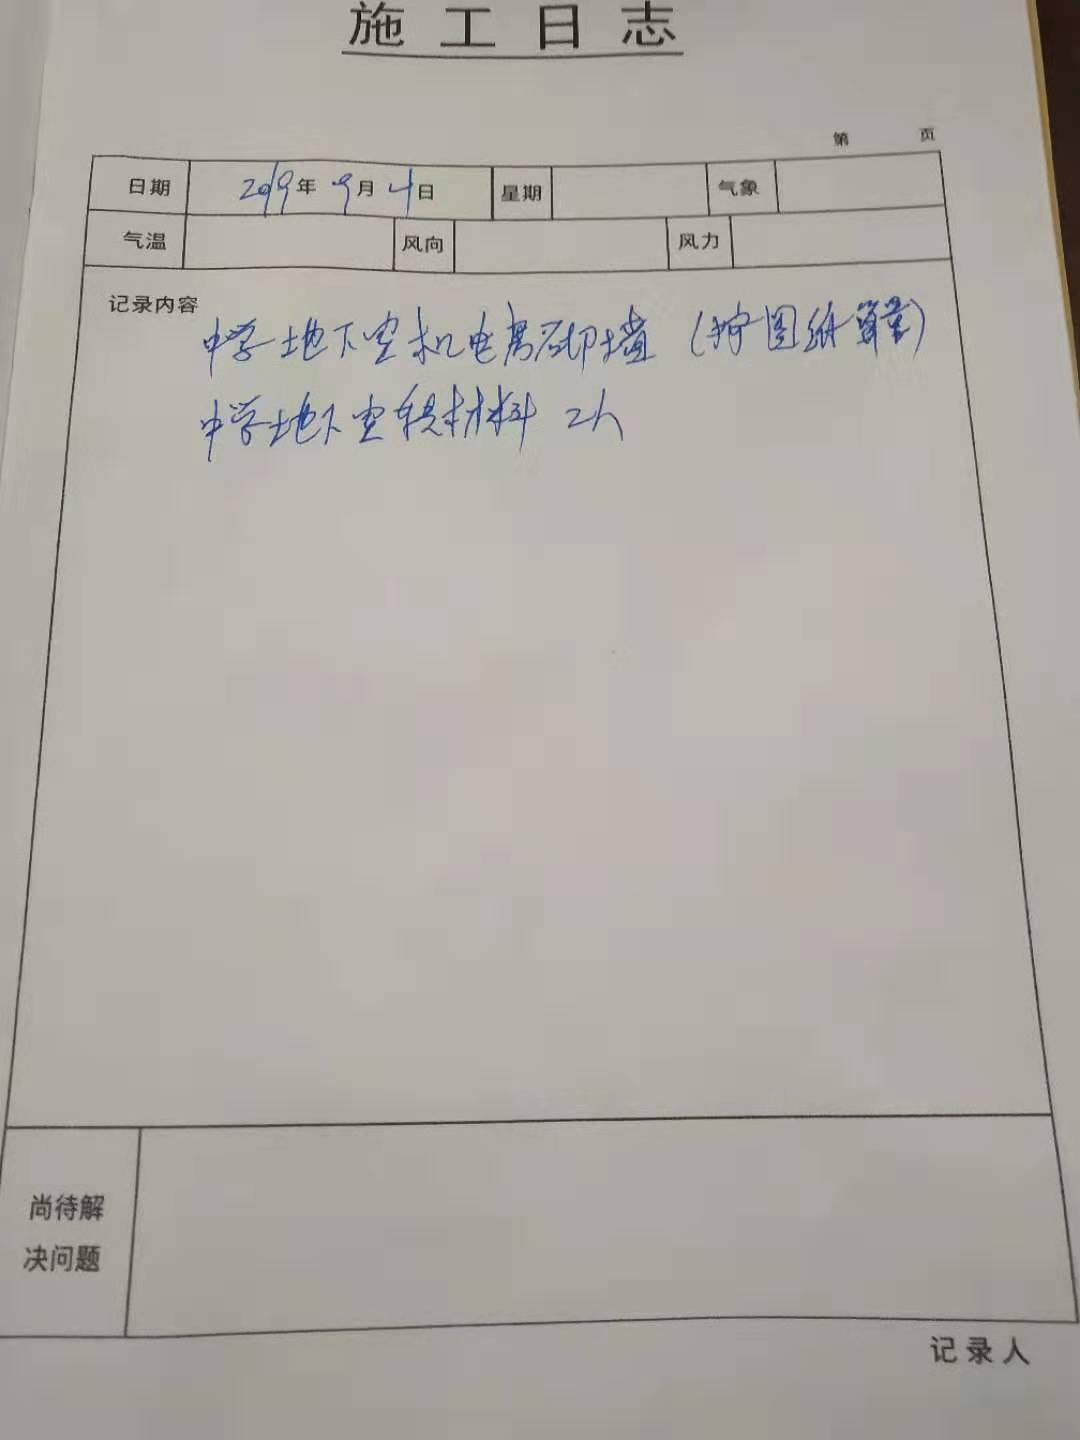 施工日志
第 页
日期 2019年9月4日 星期 气象
气温 风向 风力
记录内容
中学地下室机电房砌墙 (按图纸算量)
中学地下室转材料 2人
尚待解
决问题
记录人